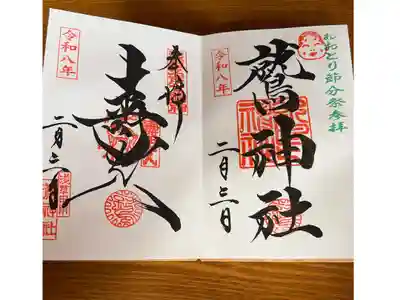 令和八年
おおとり節分祭参拝
鷲神社
二月三日
令和八年
奉拝
寿老人
二月三日